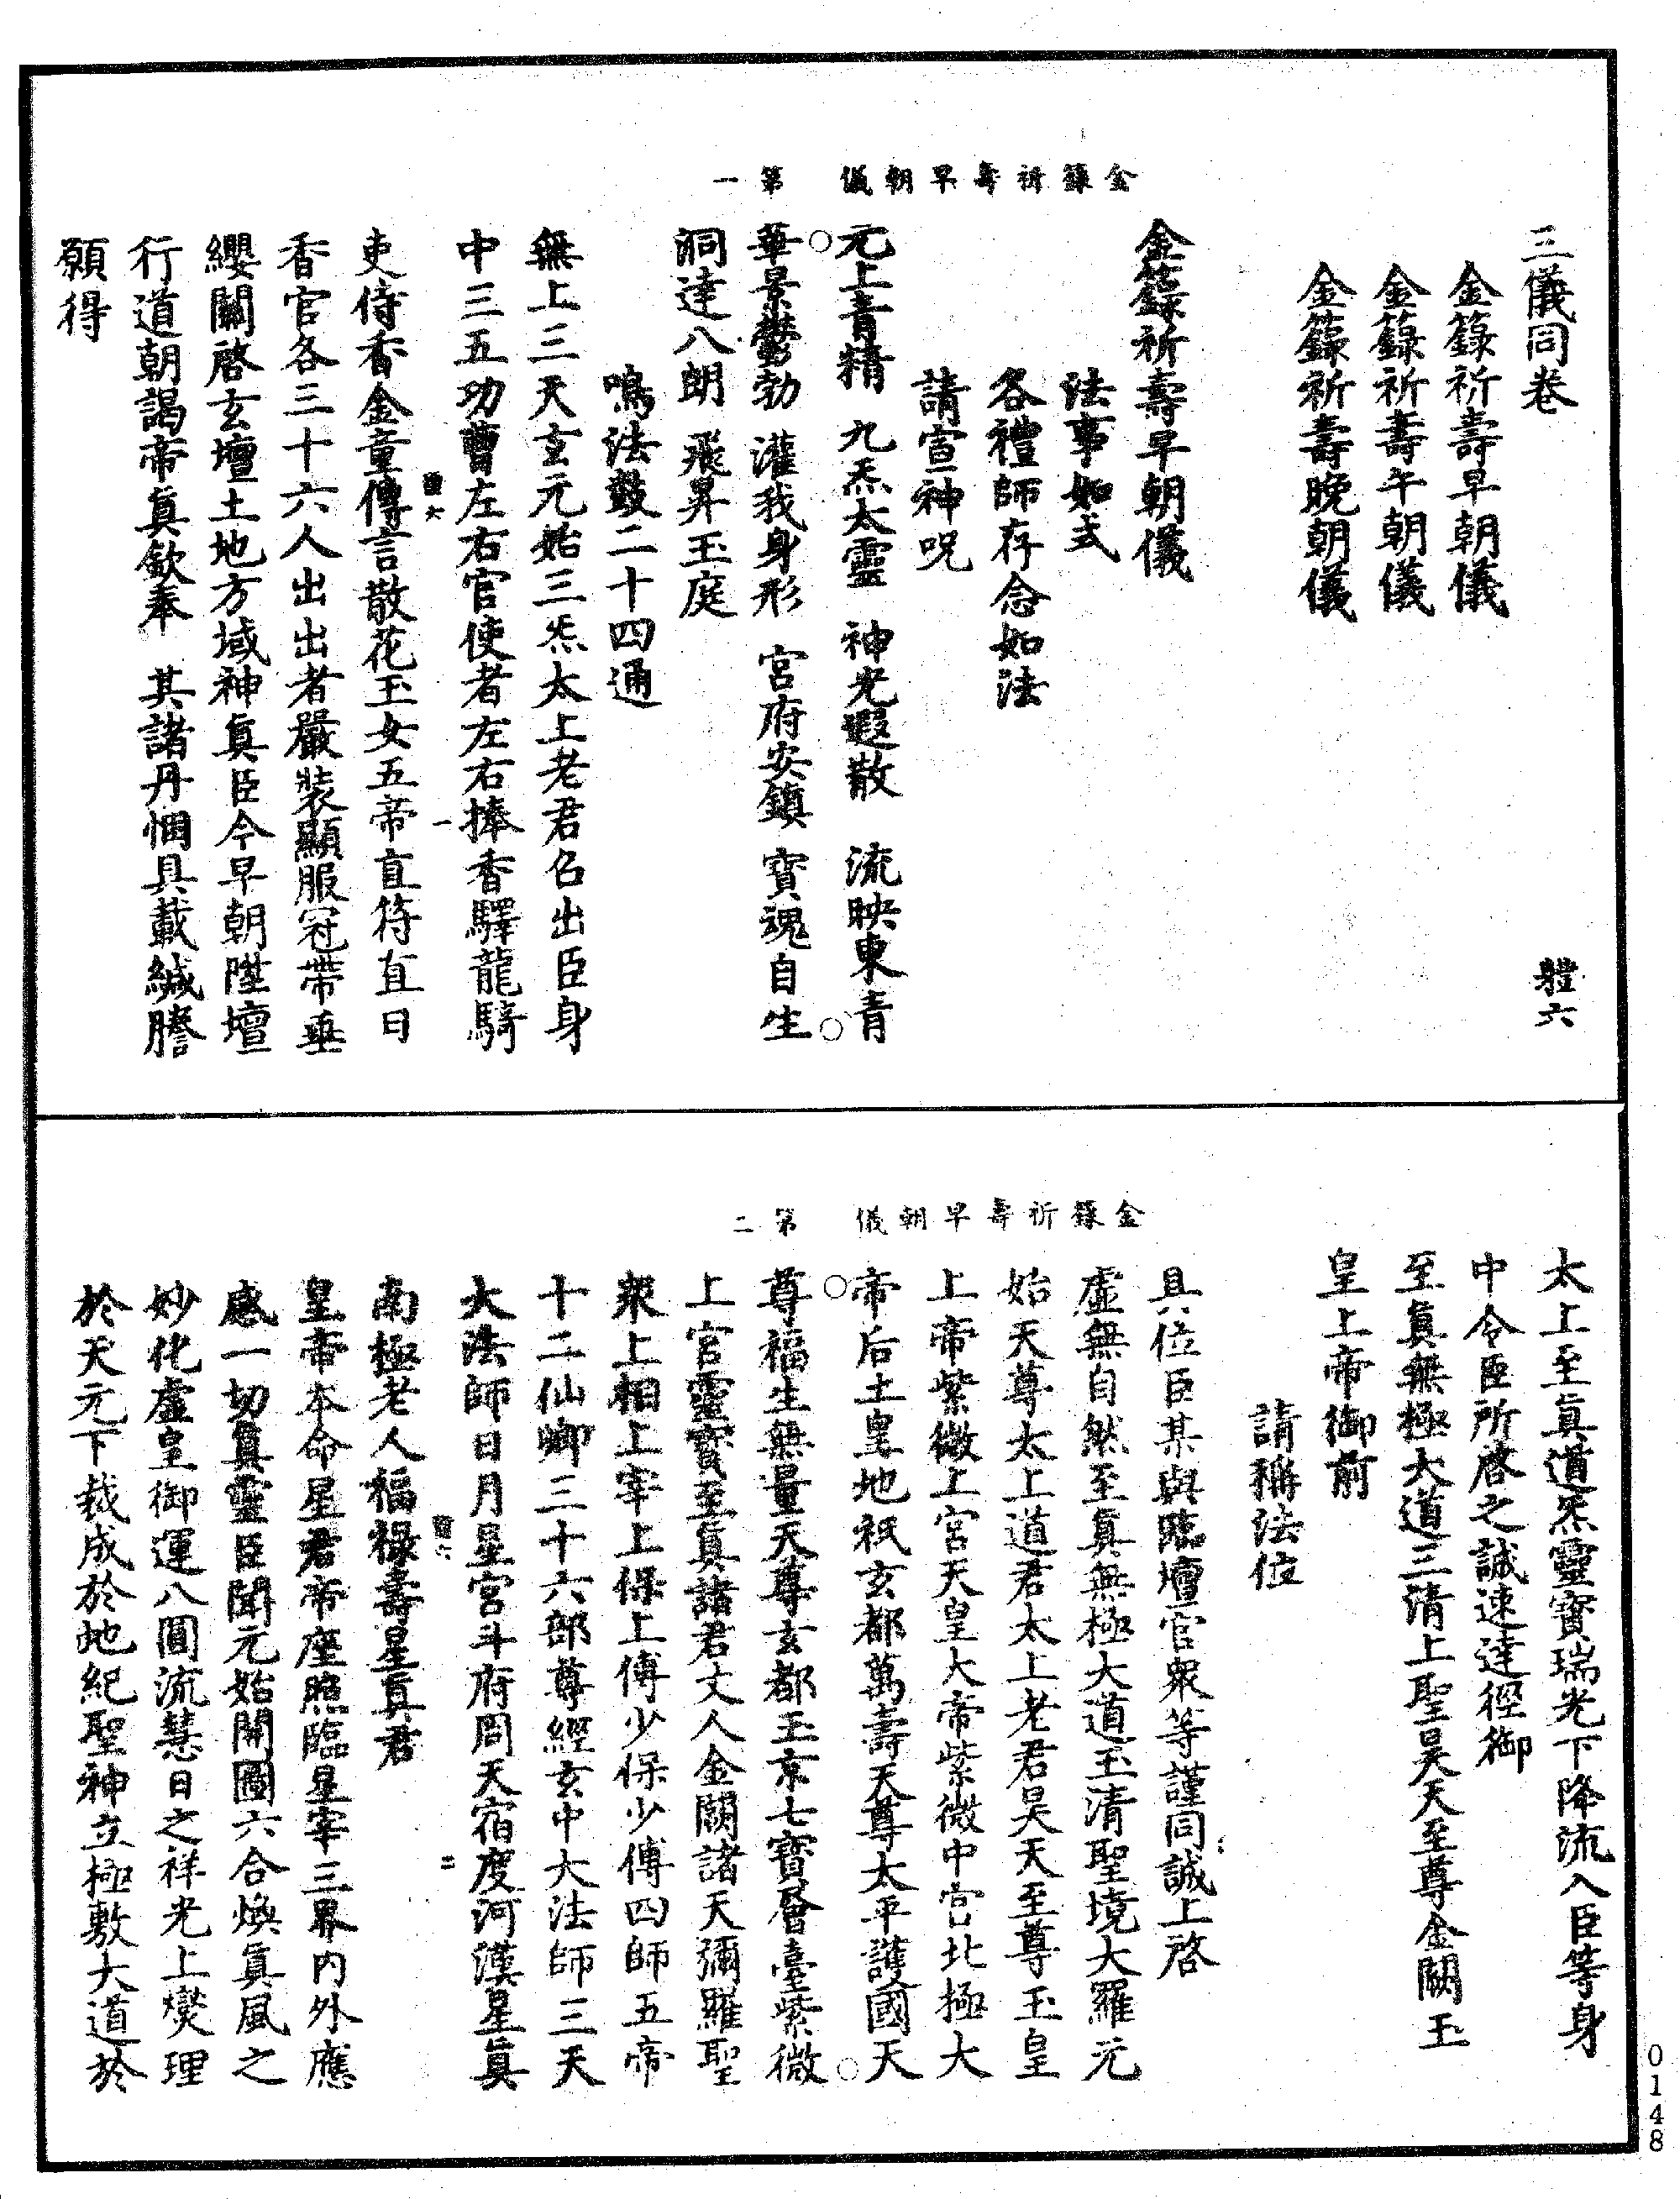 金籙祈壽早朝儀　第一
三儀同卷　體六
金籙祈壽早朝儀
金籙祈壽午朝儀
金籙祈壽晚朝儀
金籙祈壽早朝儀
法事如式
各禮師存念如法
請宣神呪
元上青精　九炁太靈　神光遐散　流映東青
華景鬱勃　灌我身形　宮府安鎮　寶魂自生
洞達八朗　飛昇玉庭
鳴法鼓二十四通
無上三天玄元始三炁太上老君召出臣身
中三五功曹左右官使者左右捧香驛龍騎
體六　一
吏侍香金童傳言散花玉女五帝直符直日
香官各三十六人出出者嚴裝顯服冠帶垂
纓關啓玄壇土地方域神眞臣今早朝陞壇
行道朝謁帝眞欽奉　其諸丹悃具載緘謄
願得
金籙祈壽早朝儀　第二
太上至眞道炁靈寶瑞光下降流入臣等身
中令臣所啓之誠速達徑御
至眞無極大道三清上聖昊天至尊金闕玉
皇上帝御前
請稱法位
具位臣某與臨壇官衆等謹同誠上啓
虛無自然至眞無極大道玉清聖境大羅元
始天尊太上道君太上老君昊天至尊玉皇
上帝紫微上宮天皇大帝紫微中宮北極大
帝后土皇地祇玄都萬壽天尊太平護國天
尊福生無量天尊玄都玉京七寶層臺紫微
上宮靈寶至眞諸君丈人金闕諸天彌羅聖
衆上相上宰上保上傅少保少傅四師五帝
十二仙卿三十六部尊經玄中大法師三天
大法師日月星宮斗府周天宿度河漢星眞
體六　二
南極老人福祿壽星眞君
皇帝本命星君帝座照臨星宰三界內外應
感一切眞靈臣聞元始開圖六合煥眞風之
妙化虛皇御運八圓流慧日之祥光上爕理
於天元下裁成於地紀聖神立極敷大道於
0148